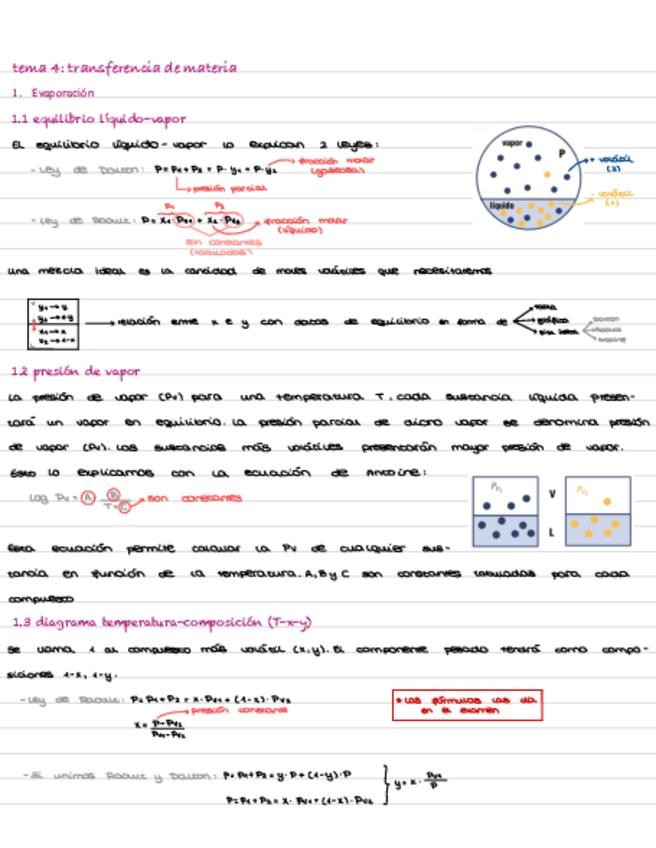 tema 4: transferencia de materia
1. Evaporación
1.1 equilibrio líquido-vapor
El equilibrio líquido-vapor lo explican 2 leyes:
- Ley de Dalton: P = P₁ + P₂ = P · y₁ + P · y₂ → fracción molar (gaseosa)
presión parcial
P₁ P₂
- Ley de Raoult: P = x₁ · Pv₁ + x₂ · Pv₂ → fracción molar (líquido)
son constantes
(tabuladas)
vapor
P
+ volátil
(2)
líquido
- volátil
(1)
una mezcla ideal es la cantidad de moles volátiles que necesitaremos
y₁ → y
y₂ → 1-y
x₁ → x
x₂ → 1-x
relación entre x e y con datos de equilibrio en forma de
gráfica
Dalton
Raoult
Antoine
1.2 presión de vapor
La presión de vapor (Pv) para una temperatura T, cada sustancia líquida presen-
tará un vapor en equilibrio. La presión parcial de dicho vapor se denomina presión
de vapor (Pv). Las sustancias más volátiles presentarán mayor presión de vapor.
Esto lo explicamos con la ecuación de Antoine:
log Pv = A - B / T+C → son constantes
Pv₁ V Pv₂
L
Esta ecuación permite calcular la Pv de cualquier sus-
tancia en función de la temperatura. A, B y C son constantes tabuladas para cada
compuesto
1.3 diagrama temperatura-composición (T-x-y)
se llama 1 al compuesto más volátil (x,y). El componente pesado tendrá como compo-
siciones 1-x, 1-y.
- Ley de Raoult: P = P₁ + P₂ = x · Pv₁ + (1-x) · Pv₂
presión constante
x = P - Pv₂ / Pv₁ - Pv₂
* Las fórmulas las da
en el examen
- Si unimos Raoult y Dalton: P = P₁ + P₂ = y · P + (1-y) · P
P = P₁ + P₂ = x · Pv₁ + (1-x) · Pv₂
y = x · Pv₁ / P